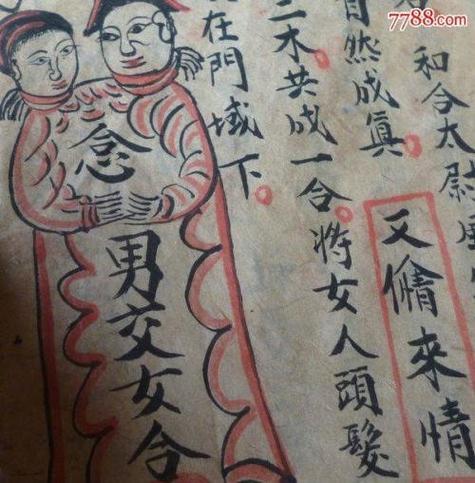 7788.com
和合太尉
又來情
自然成眞。
二木共成一合。將女人頭髮
在門域下。
念
男交女合